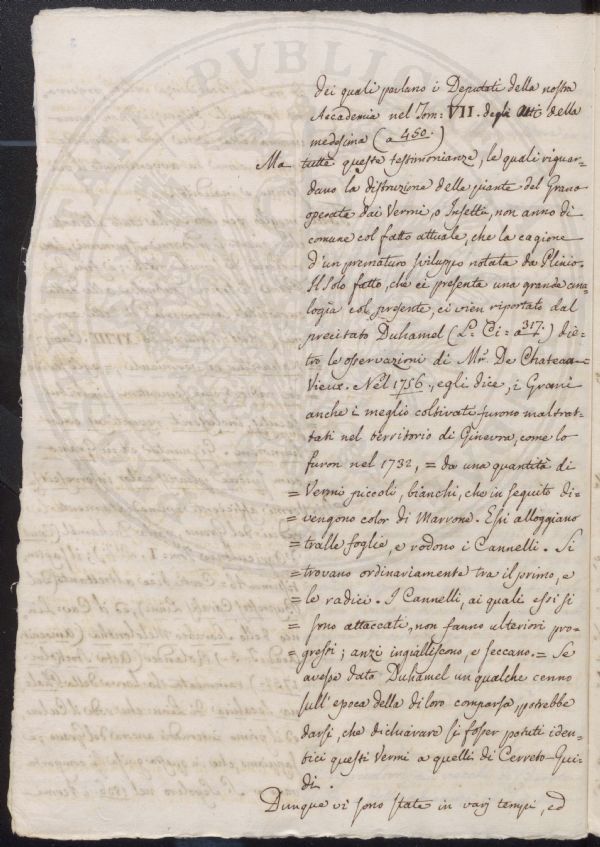 dei quali parlano i Deputati della nostra
Accademia nel Tom: VII. degli Atti della
medesima (a 450.)
Ma tutte queste testimonianze, le quali riguar-
dano la distruzione delle piante del Grano
operata dai Vermi, o Insetti, non anno di
comune col fatto attuale, che la cagione
d'un prematuro sviluppo notata da Plinio.
Il solo fatto, che ci presenta una grande ana-
logia col presente, ci vien riportato dal
precitato Duhamel (L: Ci: a 317.) die-
tro le osservazioni di Mr. De Chateau-
Vieux. Nel 1756., egli dice, i Grani
anche i meglio coltivati furono maltrat-
tati nel territorio di Ginevra, come lo
furon nel 1732, = da una quantità di
= Vermi piccoli, bianchi, che in seguito di-
= vengono color di Marrone. Essi alloggiano
= tralle foglie, e rodono i Cannelli. Si
= trovano ordinariamente tra il primo, e
= le radici. I Cannelli, ai quali essi si
= sono attaccati, non fanno ulteriori pro-
= gressi; anzi ingialliscono, e seccano. = Se
avesse dato Duhamel un qualche cenno
sull'epoca della di loro comparsa, potrebbe
darsi, che dichiarare si fosser potuti iden-
tici questi Vermi a quelli di Cerreto-Gui-
di.
Dunque vi sono state in varj tempi, ed